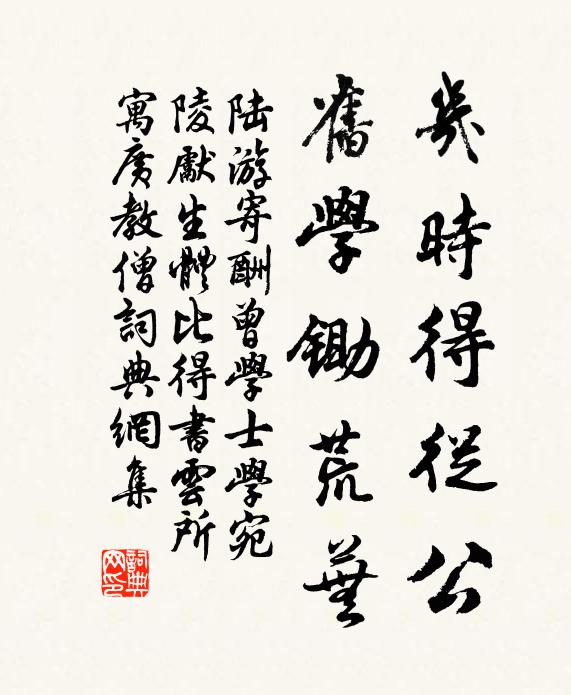 幾時得從公
舊學鋤荒蕪
陆游寄酬曾學士學宛
陵獻生體比得書雲所
寓廣教僧詞典網集
詞典
网印